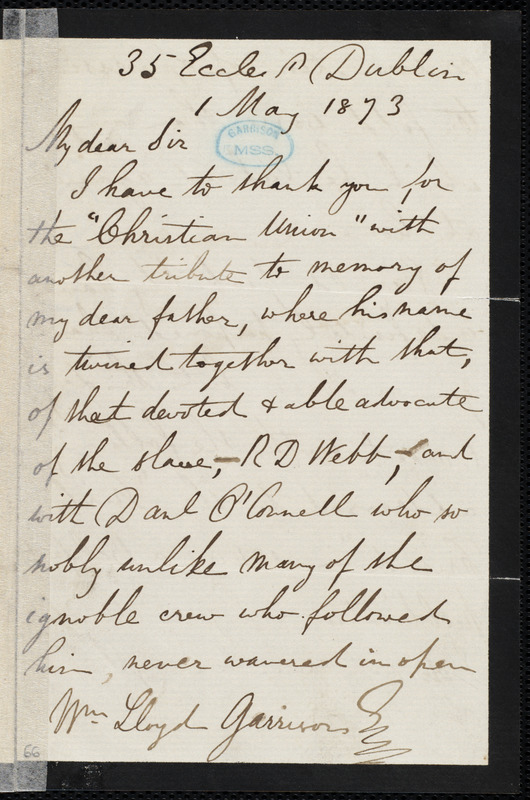 35 Eccles St Dublin
1 May 1873
My dear Sir
GARRISON
MSS.
I have to thank you for
the "Christian Union" with
another tribute to memory of
my dear father, where his name
is twined together with that,
of that devoted & able advocate
of the slave, - R D Webb, - and
with Danl O'Connell who so
nobly unlike many of the
ignoble crew who followed
him, never wavered in open
Wm Lloyd Garrison Esq
66